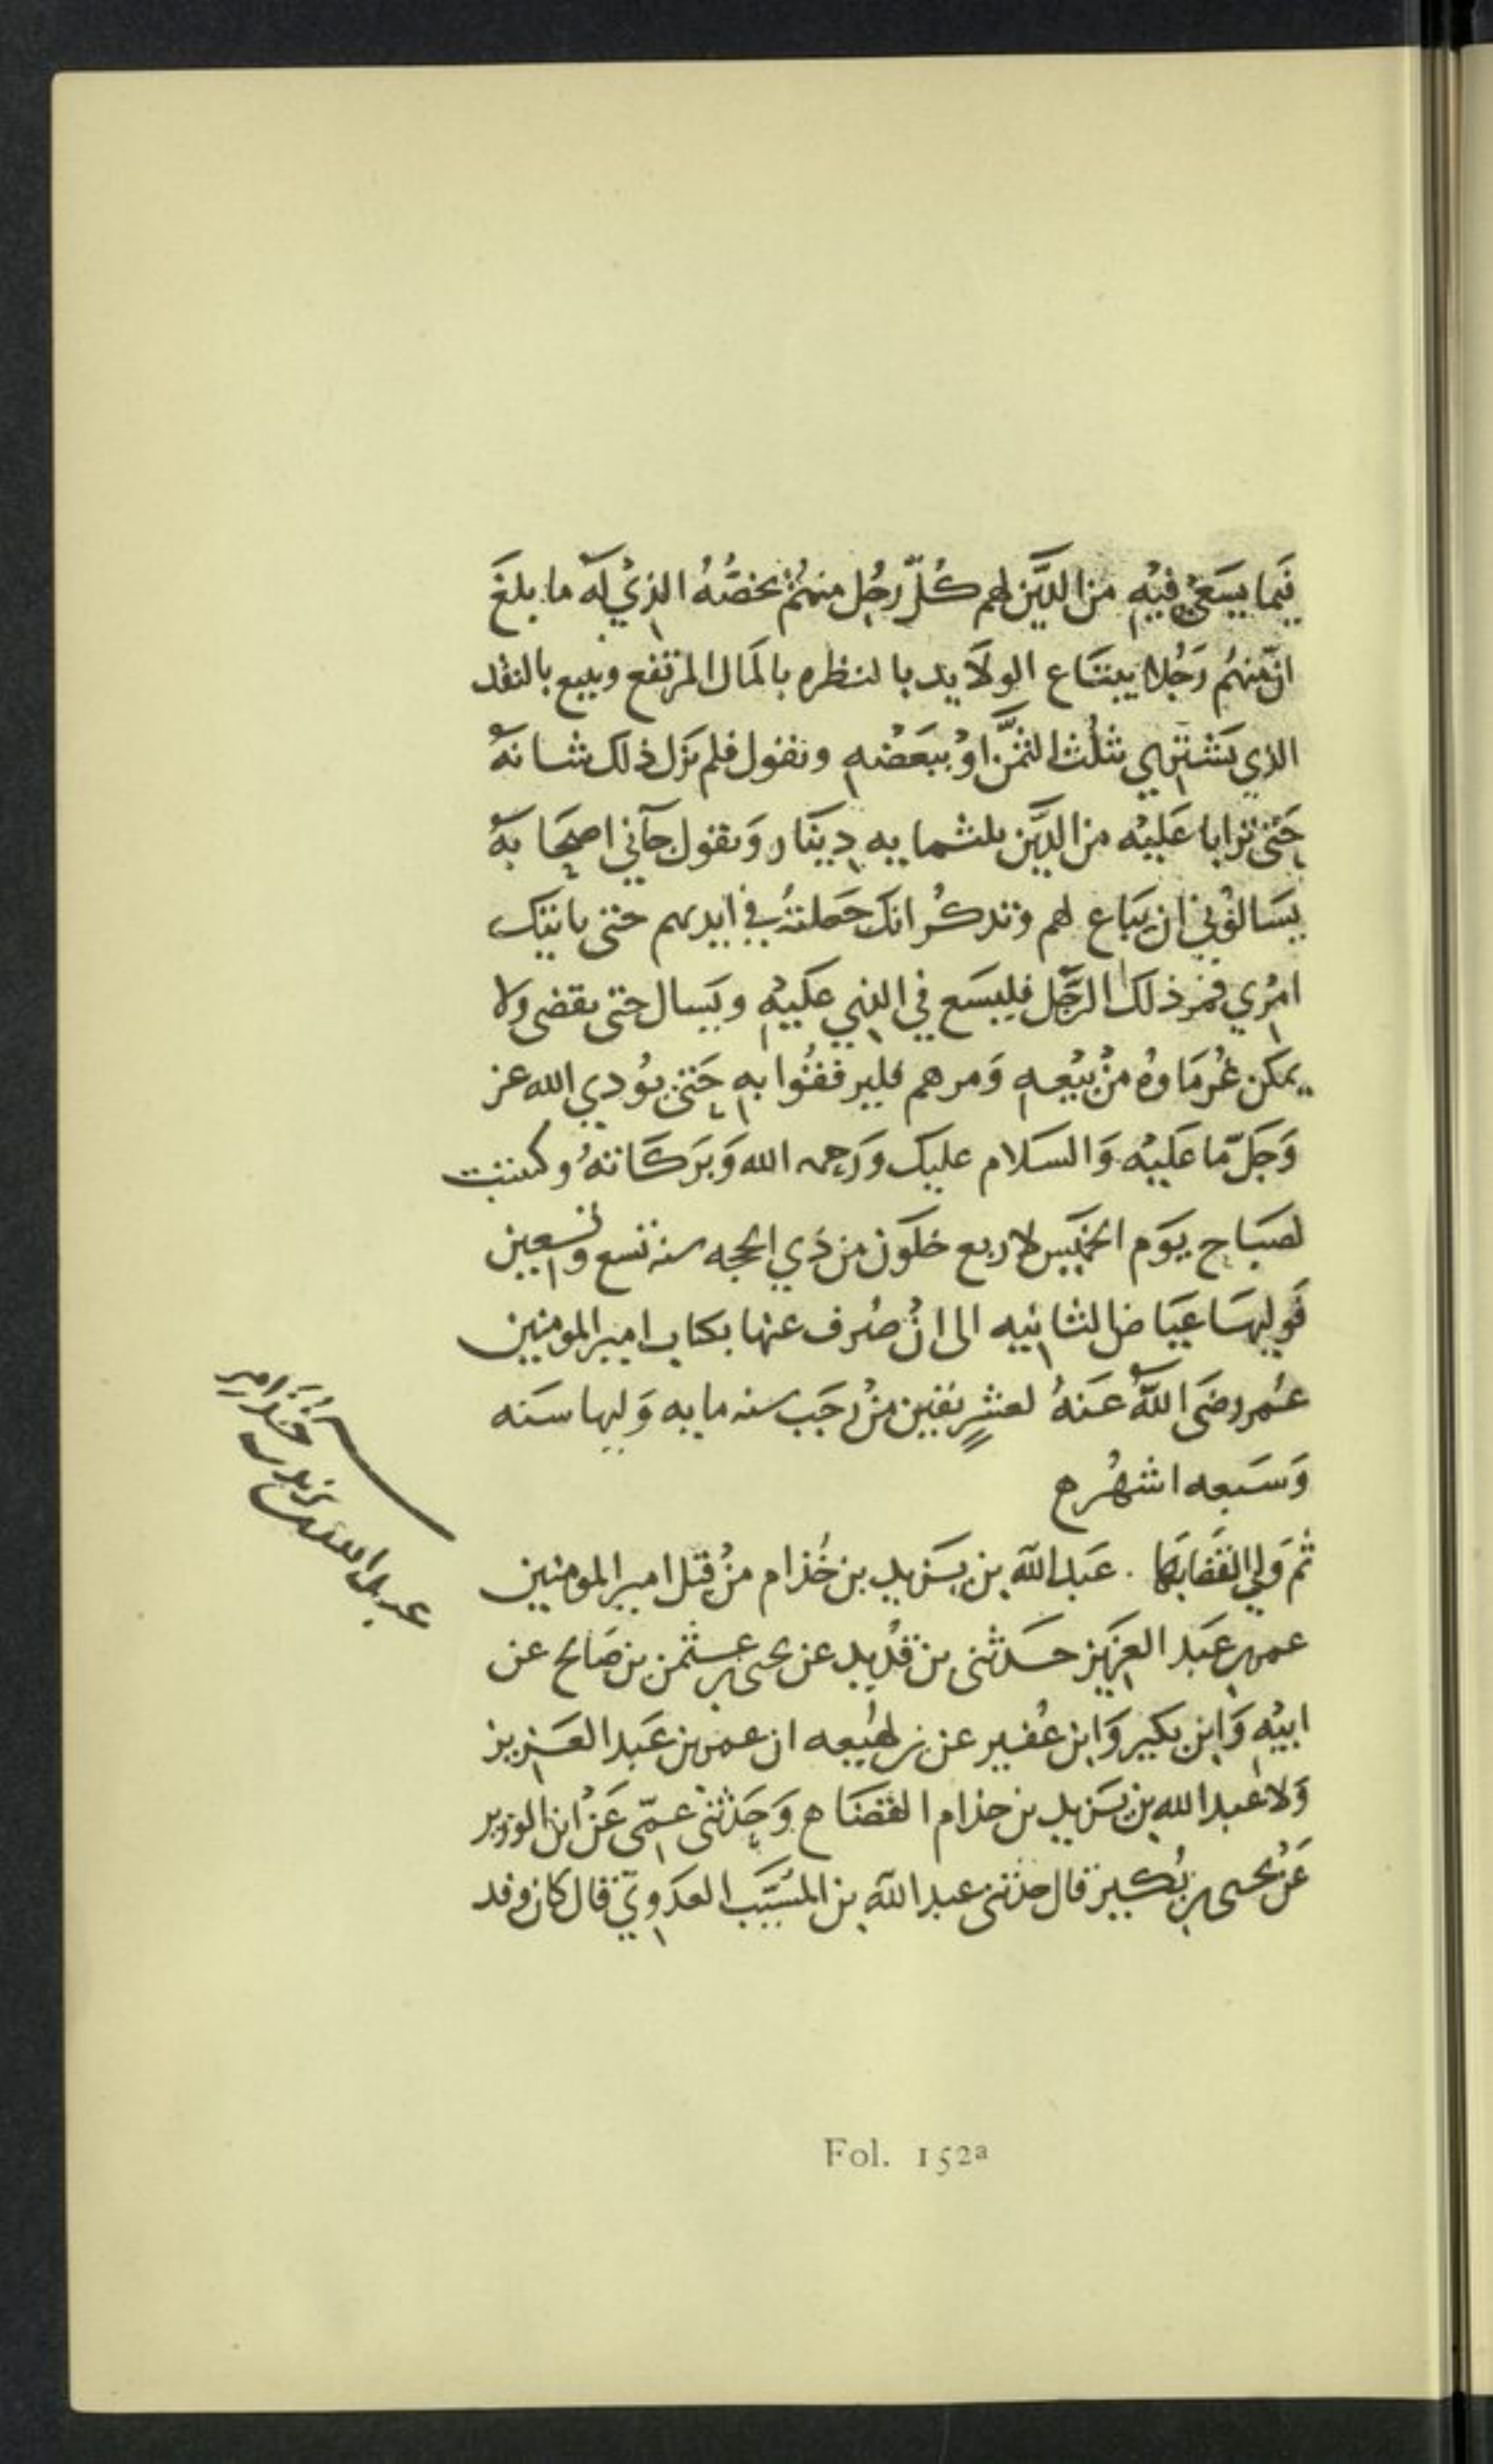 فيما يسعى فيه من الدَّين لهم كُلّ رجُل منهُم بحصَّتهُ الذي له ما بلغَ
انّ منهُم رَجُلا يبتَاع الولَايد بالنظره بالمَال المرتفع ويبيع بالنقد
الذي يَشْتهي بثلُث الثمَّن اوْ ببَعْضه وتقول فلم يزَل ذلك شانهُ
حَتى ترابا عَليْه من الدَّين ثلثمايه دِينَار وَتقول جآني اصحَابهُ
يسَالُوني ان يبَاع لهم وتدكُر انك جَعلتهُ في ايديهم حتى ياتيك
امْري فمر ذلك الرَّجُل فليسَع في الذي عَليْه ويَسال حتى يقضى ولا
يمكن غُرمَاوهُ منْ بيْعه وَمرهم فليرفقُوا به حَتى يوُدي الله عز
وَجَلّ مّا عَليْه وَالسَلام عليك وَرَحمه الله وَبَرَكَاتهُ وكتبت
لصبَاح يوَم الخمَيس لاربع خلَوْن من ذي الحجه سنه تسع وتسعين
فَوليهَا عيَاض الثانيه الى انْ صُرف عنها بكتاب امير المومنين
عُمر رضَي اللهُ عَنهُ لعشْرٍ بقين منْ رَجَب سنه مايه وَليها سَنه
وَسَبعه اشهُر ه
ثمَ وَلي القَضَا بهَا . عَبد الله بن يَزيد بن خُذام منْ قبَل امير المومنين
عمر بن عبَد العزَيز حَدثنى بن قدُيد عن يحيى بن عثمن بن صَالح عن
ابيْه وَابن بكير وَابن عُفير عن بن لهُيعه ان عمر بن عَبد العَزيز
وَلا عَبد الله بن يَزيد بن خذام القضَا ه وَحَدثنى عمّى عَنْ ابن الوزير
عَنْ يحيى بن بُكير قال حدثنى عبد الله بن المسَيَّب العدَوي قال كان وفد
عبد الله بن يزيد بن خُذَامر
Fol. 152a